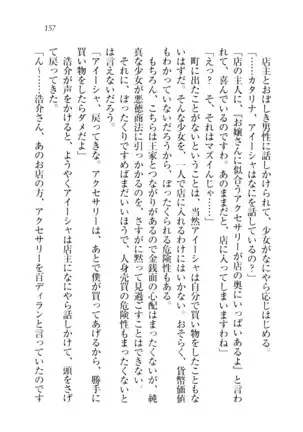 157
店主とおぼしき男性に話しかけられて、少女がなにやら応じはじめる。
「……カタリナ、アイーシャはなにを話しているの？」
「店の主人に、『お嬢さんに似合うアクセサリーが店の奥にいっぱいあるよ』と言わ
れて、喜んでいるようですわね。あのままだと、店に入ってしまいますわ」
「えっ？　そ、それはマズイんじゃ……」
町に出たことがないということは、当然アイーシャは自分で買い物をしたことがな
いはずだ。そんな少女を、一人で店に入れるわけにはいかない。おそらく、貨幣価値
もまったくわかっていないだろうから、ぼったくられる危険性もある。
もちろん、こちらは王家とつながりがあるので金銭面の心配はまったくないが、純
真な少女が悪徳商法に引っかかるのを、さすがに黙って見過ごすことはできない。
それに、ぼったくりですめばまだいいほうで、人身売買の危険性もまったくないと
は言えないだろう。
「アイーシャ、戻ってきな。アクセサリーは、あとで僕が買ってあげるから、勝手に
買い物をしたらダメだよ」
浩介が声をかけると、ようやくアイーシャは店主になにやら話しかけて、頭をさげ
て戻ってきた。
「ん〜……浩介さん、あのお店の方、アクセサリーを百ディランと言っていたのです